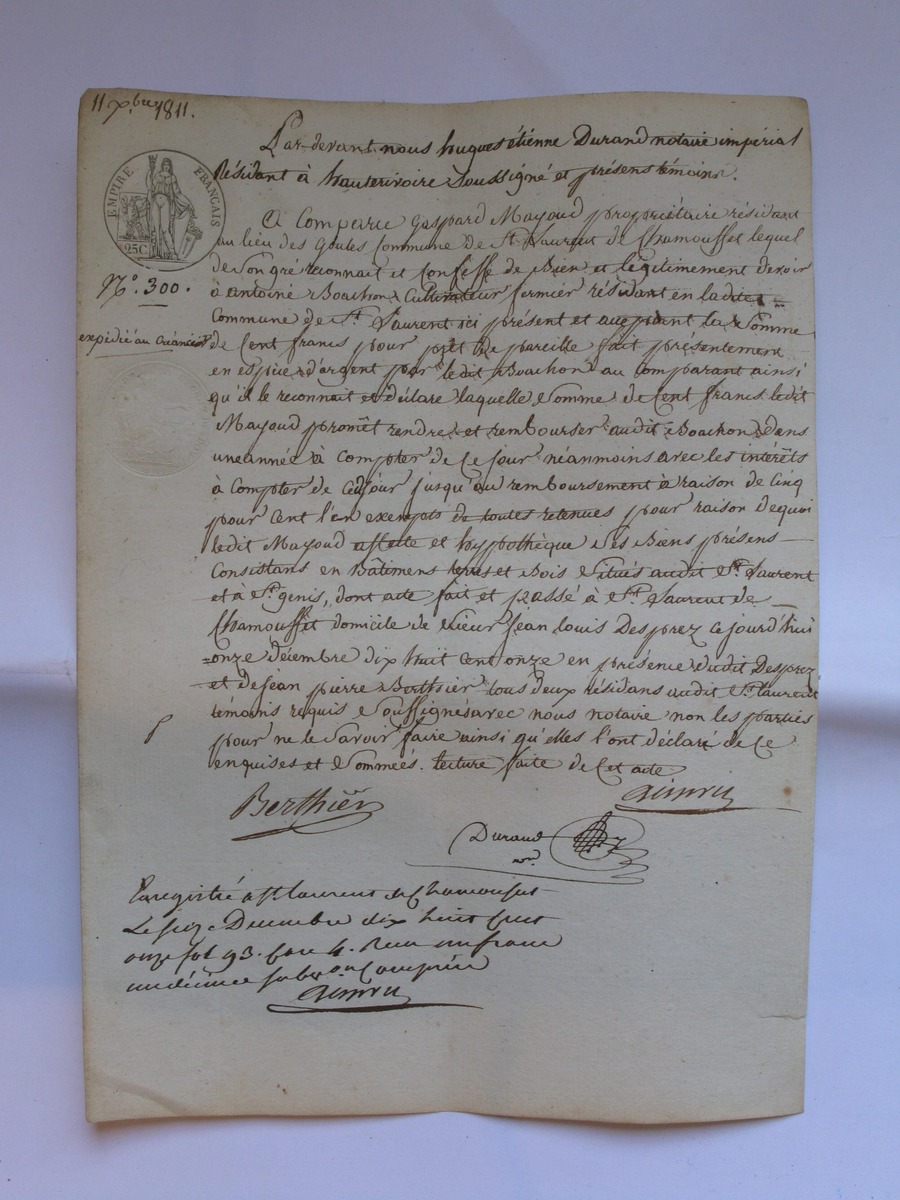 11 Xbre 1811.
Par-devant nous hugues étienne Durand notaire impérial
Résidant à hauterivoire Soussigné et présens témoins.
EMPIRE FRANÇAIS
25C
A Comparu Gaspard Mayoud propriétaire résidant
au lieu des Goules Commune de St. Laurent de Chamousset lequel
de Son gré reconnait et Confesse de Bien et légitimement devoir
N.o 300.
à antoine Bouchon Cultivateur fermier résidant en ladite
Commune de St. Laurent ici présent et acceptant la Somme
expédié au Créancier
de Cent francs pour prêt de pareille fait présentement
en espèce d'argent par ledit Bouchon au comparant ainsi
qu'il le reconnait et déclare laquelle Somme de Cent francs ledit
Mayoud promêt rendre et rembourser audit Bouchon dans
une année à Compter de Ce jour néanmoins avec les intérêts
à Compter de Cedjour jusqu'au remboursement à raison de Cinq
pour Cent l'an exempts de toutes retenues pour raison dequoi
ledit Mayoud affecte et hypothèque Ses Biens présens
Consistans en Bâtimens terres et Bois Situés audit St. Laurent
et à St. genis, dont acte fait et passé à St. Laurent de
Chamousset domicile de Sieur Jean Louis Desprez Ce jourd'hui
onze décembre dix huit cent onze en présence dudit Desprez
et de Jean pierre Berthier tous deux résidans audit St. laurent
témoins requis Soussignés avec nous notaire non les parties
pour ne le Savoir faire ainsi qu'elles l'ont déclaré de Ce
enquises et Sommées. lecture faite de Cet acte
Berthier
Durand
Enregistré a St laurent de Chamousset
Le Seize Décembre dix huit Cent
onze fol 93. Case 4. Recu un franc
un décime Subvon Comprise